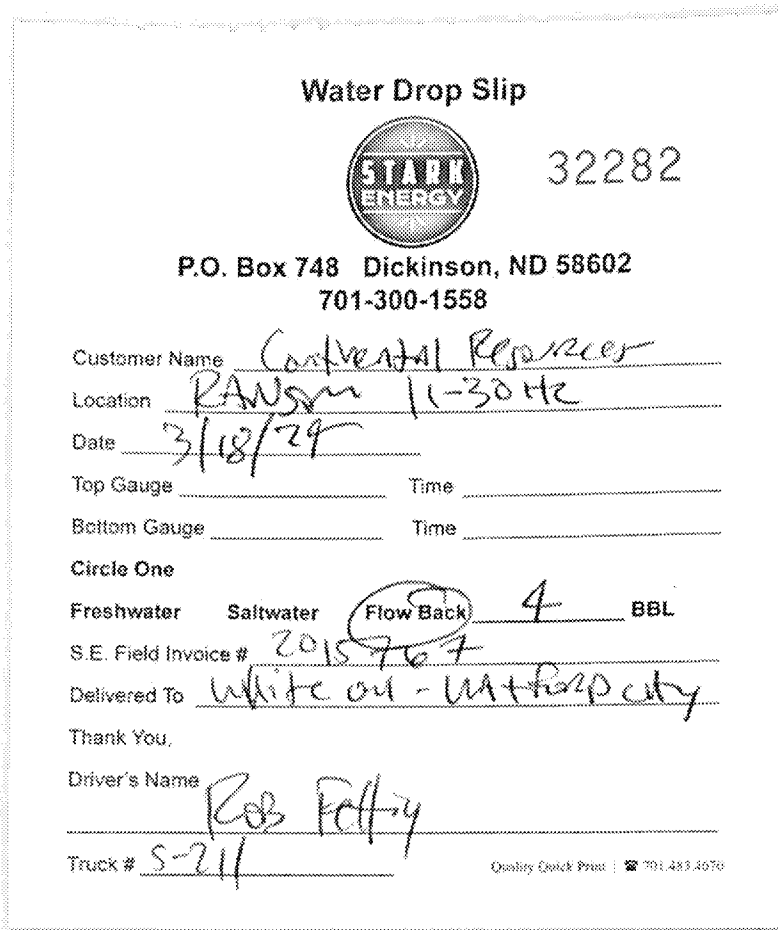 Water Drop Slip
STARK
ENERGY
32282
P.O. Box 748 Dickinson, ND 58602
701-300-1558
Customer Name Continental Resources
Location RANSOM 11-30 Hz
Date 3/18/24
Top Gauge Time
Bottom Gauge Time
Circle One
Freshwater Saltwater Flow Back 4 BBL
S.E. Field Invoice # 2015767
Delivered To White owl - Watford city
Thank You,
Driver's Name
Rob
Truck # S-211
Quality Quick Print | ☎ 701.483.4070